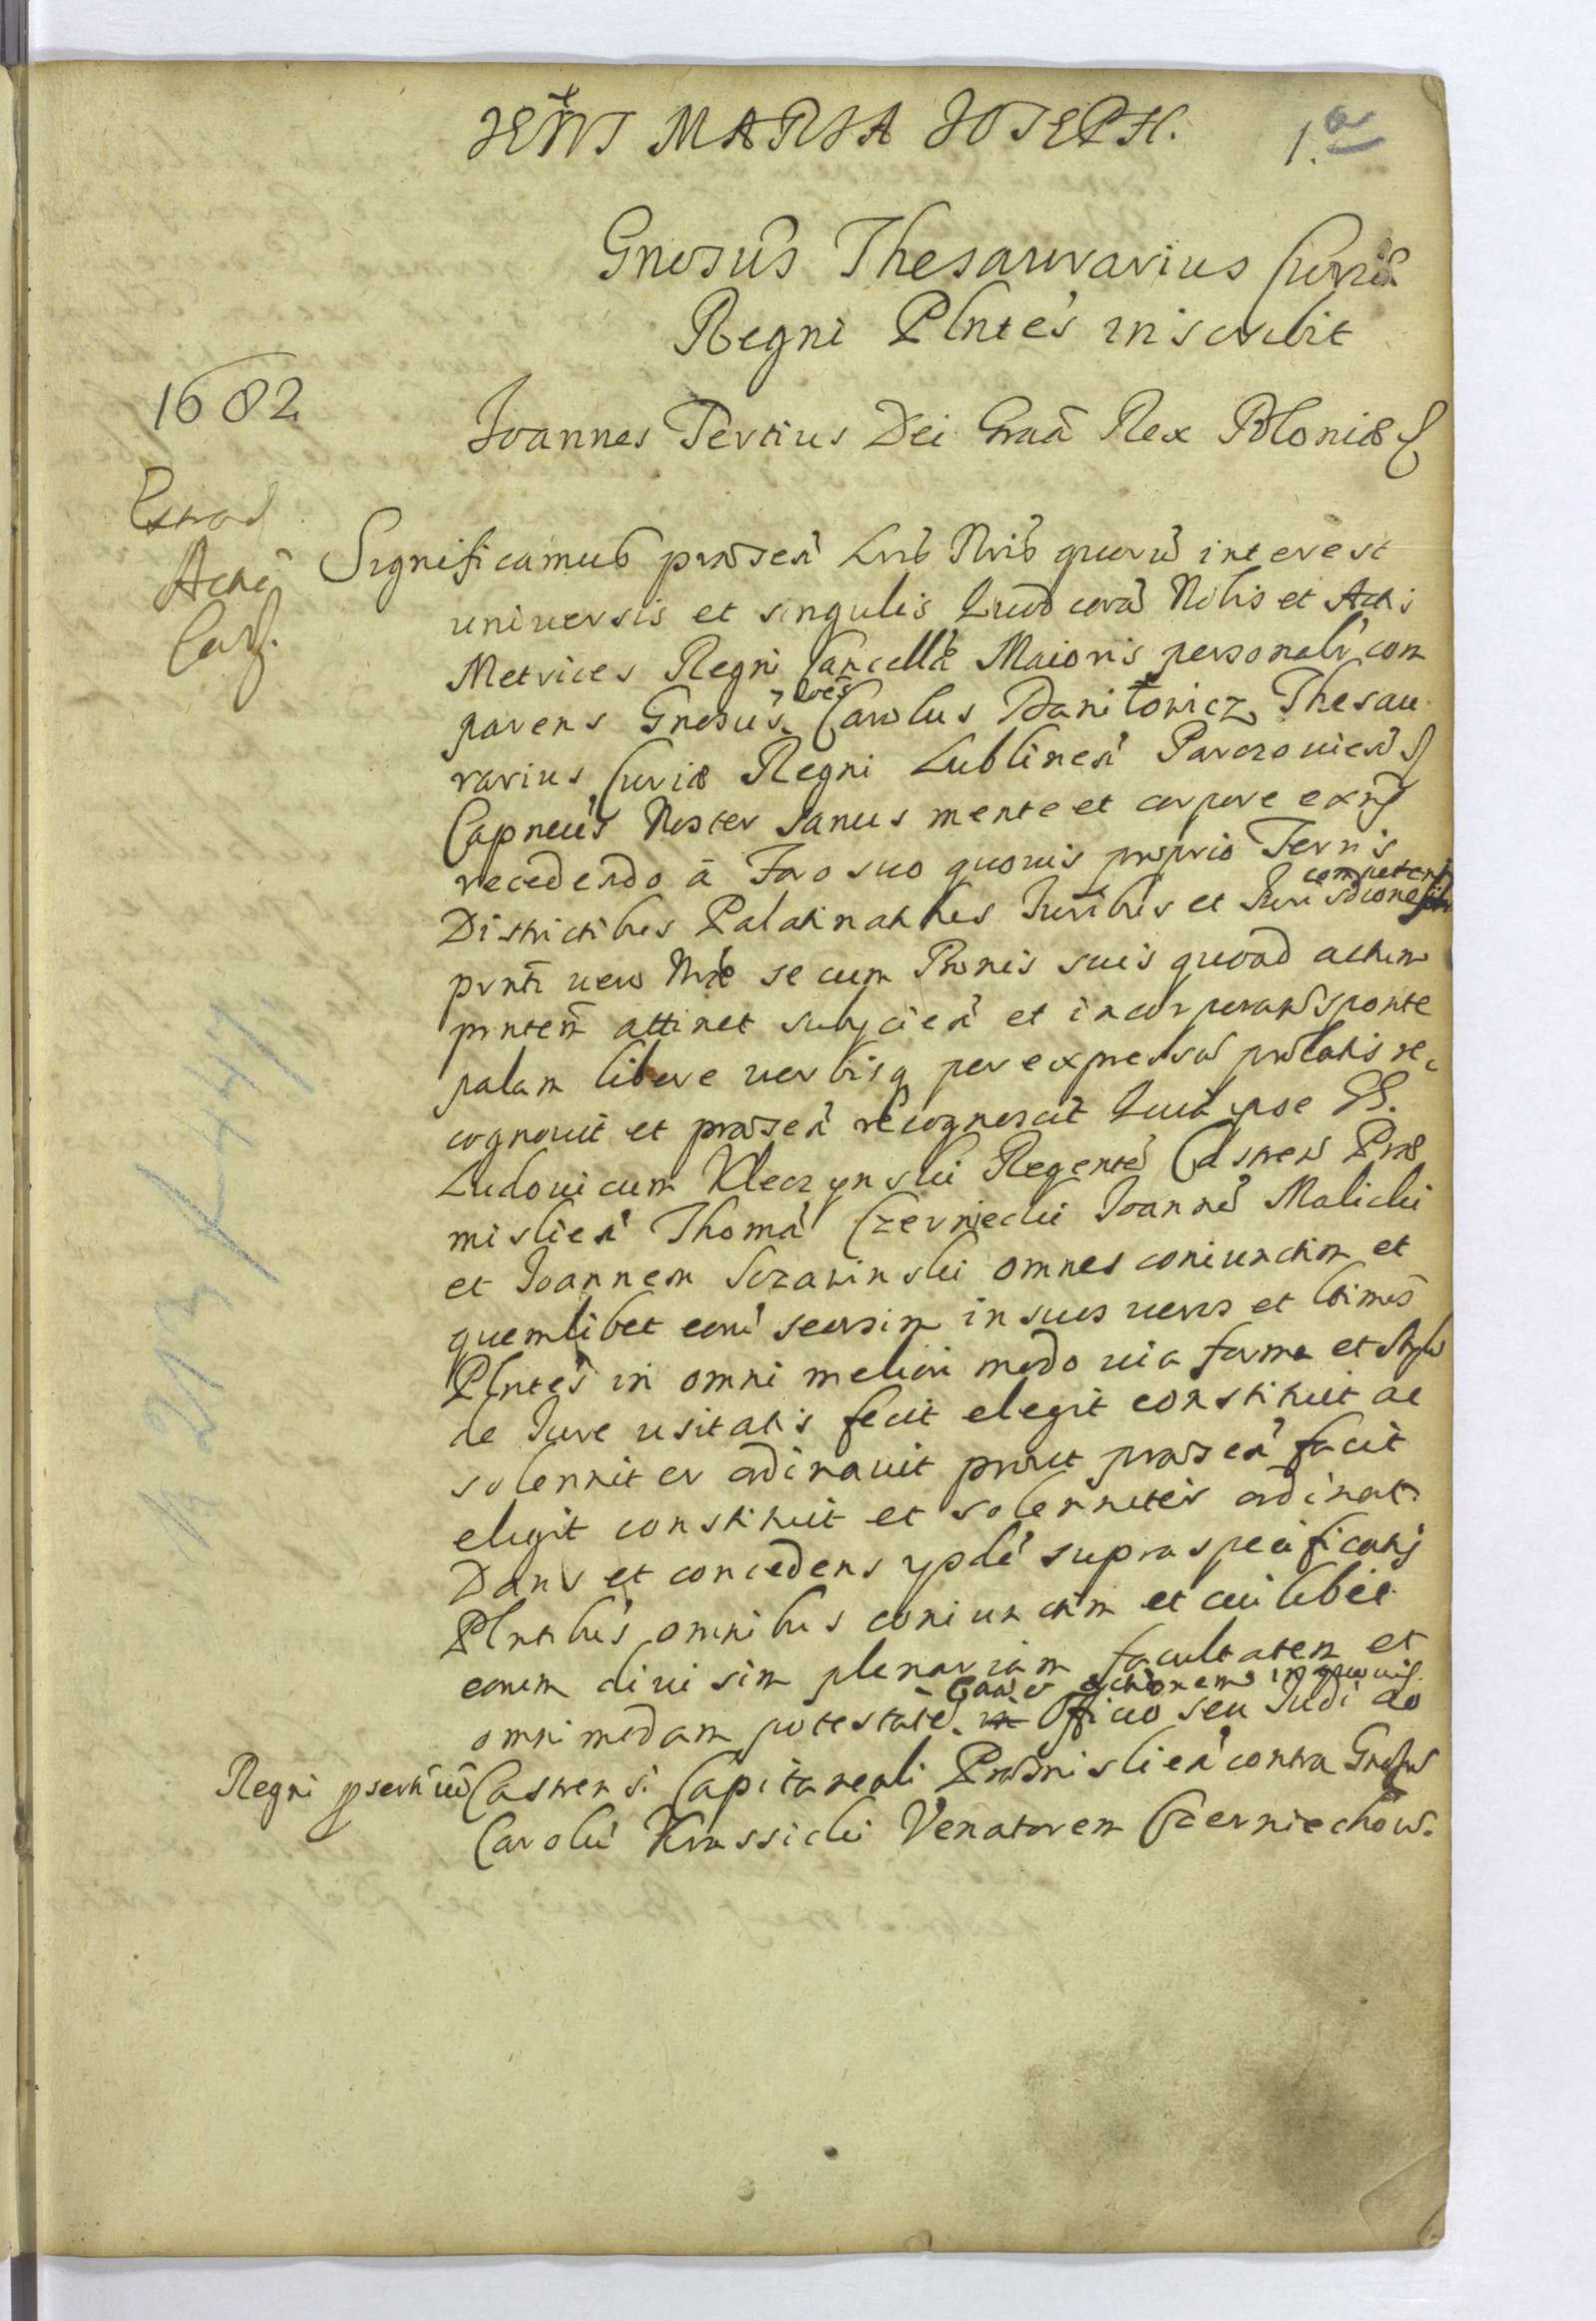 JESUS MARIA JOSEPH.
1.a
Gnosus Thesaurarius Curiæ
Regni Plntes inscribit
1682
Joannes Tertius Dei Graã Rex Poloniæ
Significamus præsen Lris Nris quorũ interest
universis et singulis Quod corã Nobis et Actis
Metrices Regni Cancellæ Maioris personalr com
parens Gnosus Carolus Daniłowicz Thesau
rarius Curiæ Regni Lublinen Parczovien
Capneus Noster sanus mente et corpore exñs
recedendo ã Foro suo quovis proprio Terris
Districtibus Palatinatibus Juribus et Jurisdconebus competen
prnti vero Nræ se cum Bonis suis quoad actum
prntem attinet subycien et incorporans sponte
palam libere verbisq per expressũ prolatis re
cognovit et præsen recognoscit Quia ipse GG.
Ludovicum Kleczynski Regentẽ Castren Præ
mislien Thomã Czerniecki Joannẽ Malicki
et Joannem Szrawinski omnes coniunctim et
quemlibet eorũ seorsim in suos veros et ltimos
Plntes in omni meliori modo via forma et stylo
de Jure usitatis fecit elegit constituit ac
solenniter ordinavit prout præsen facit
elegit constituit et solenniter ordinat
Dans et concedens ysdẽ supraspecificatis
Plntibus omnibus coniunctim et cuilibet
eorum divisim plenariam facultatem et
omnimodam potestatẽ in quovis Officio seu Judicio
Regni psertim Castrensi Capitaneali Præmislien contra Gnosum
Carolũ Krassicki Venatorem Czerniechow.